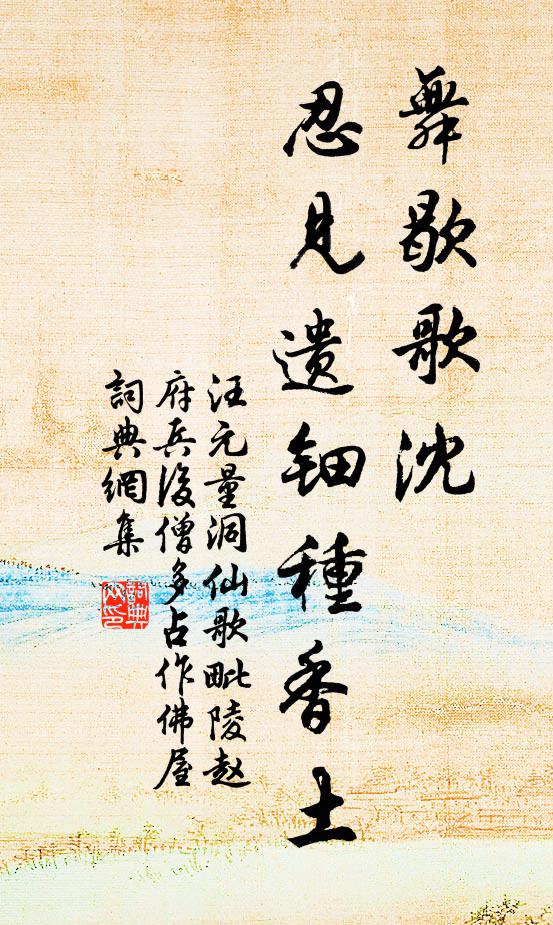 舞歇歌沈
忍見遗鈿種香土
汪元量洞仙歌毗陵赵
府兵後僧多占作佛屋
詞典網集